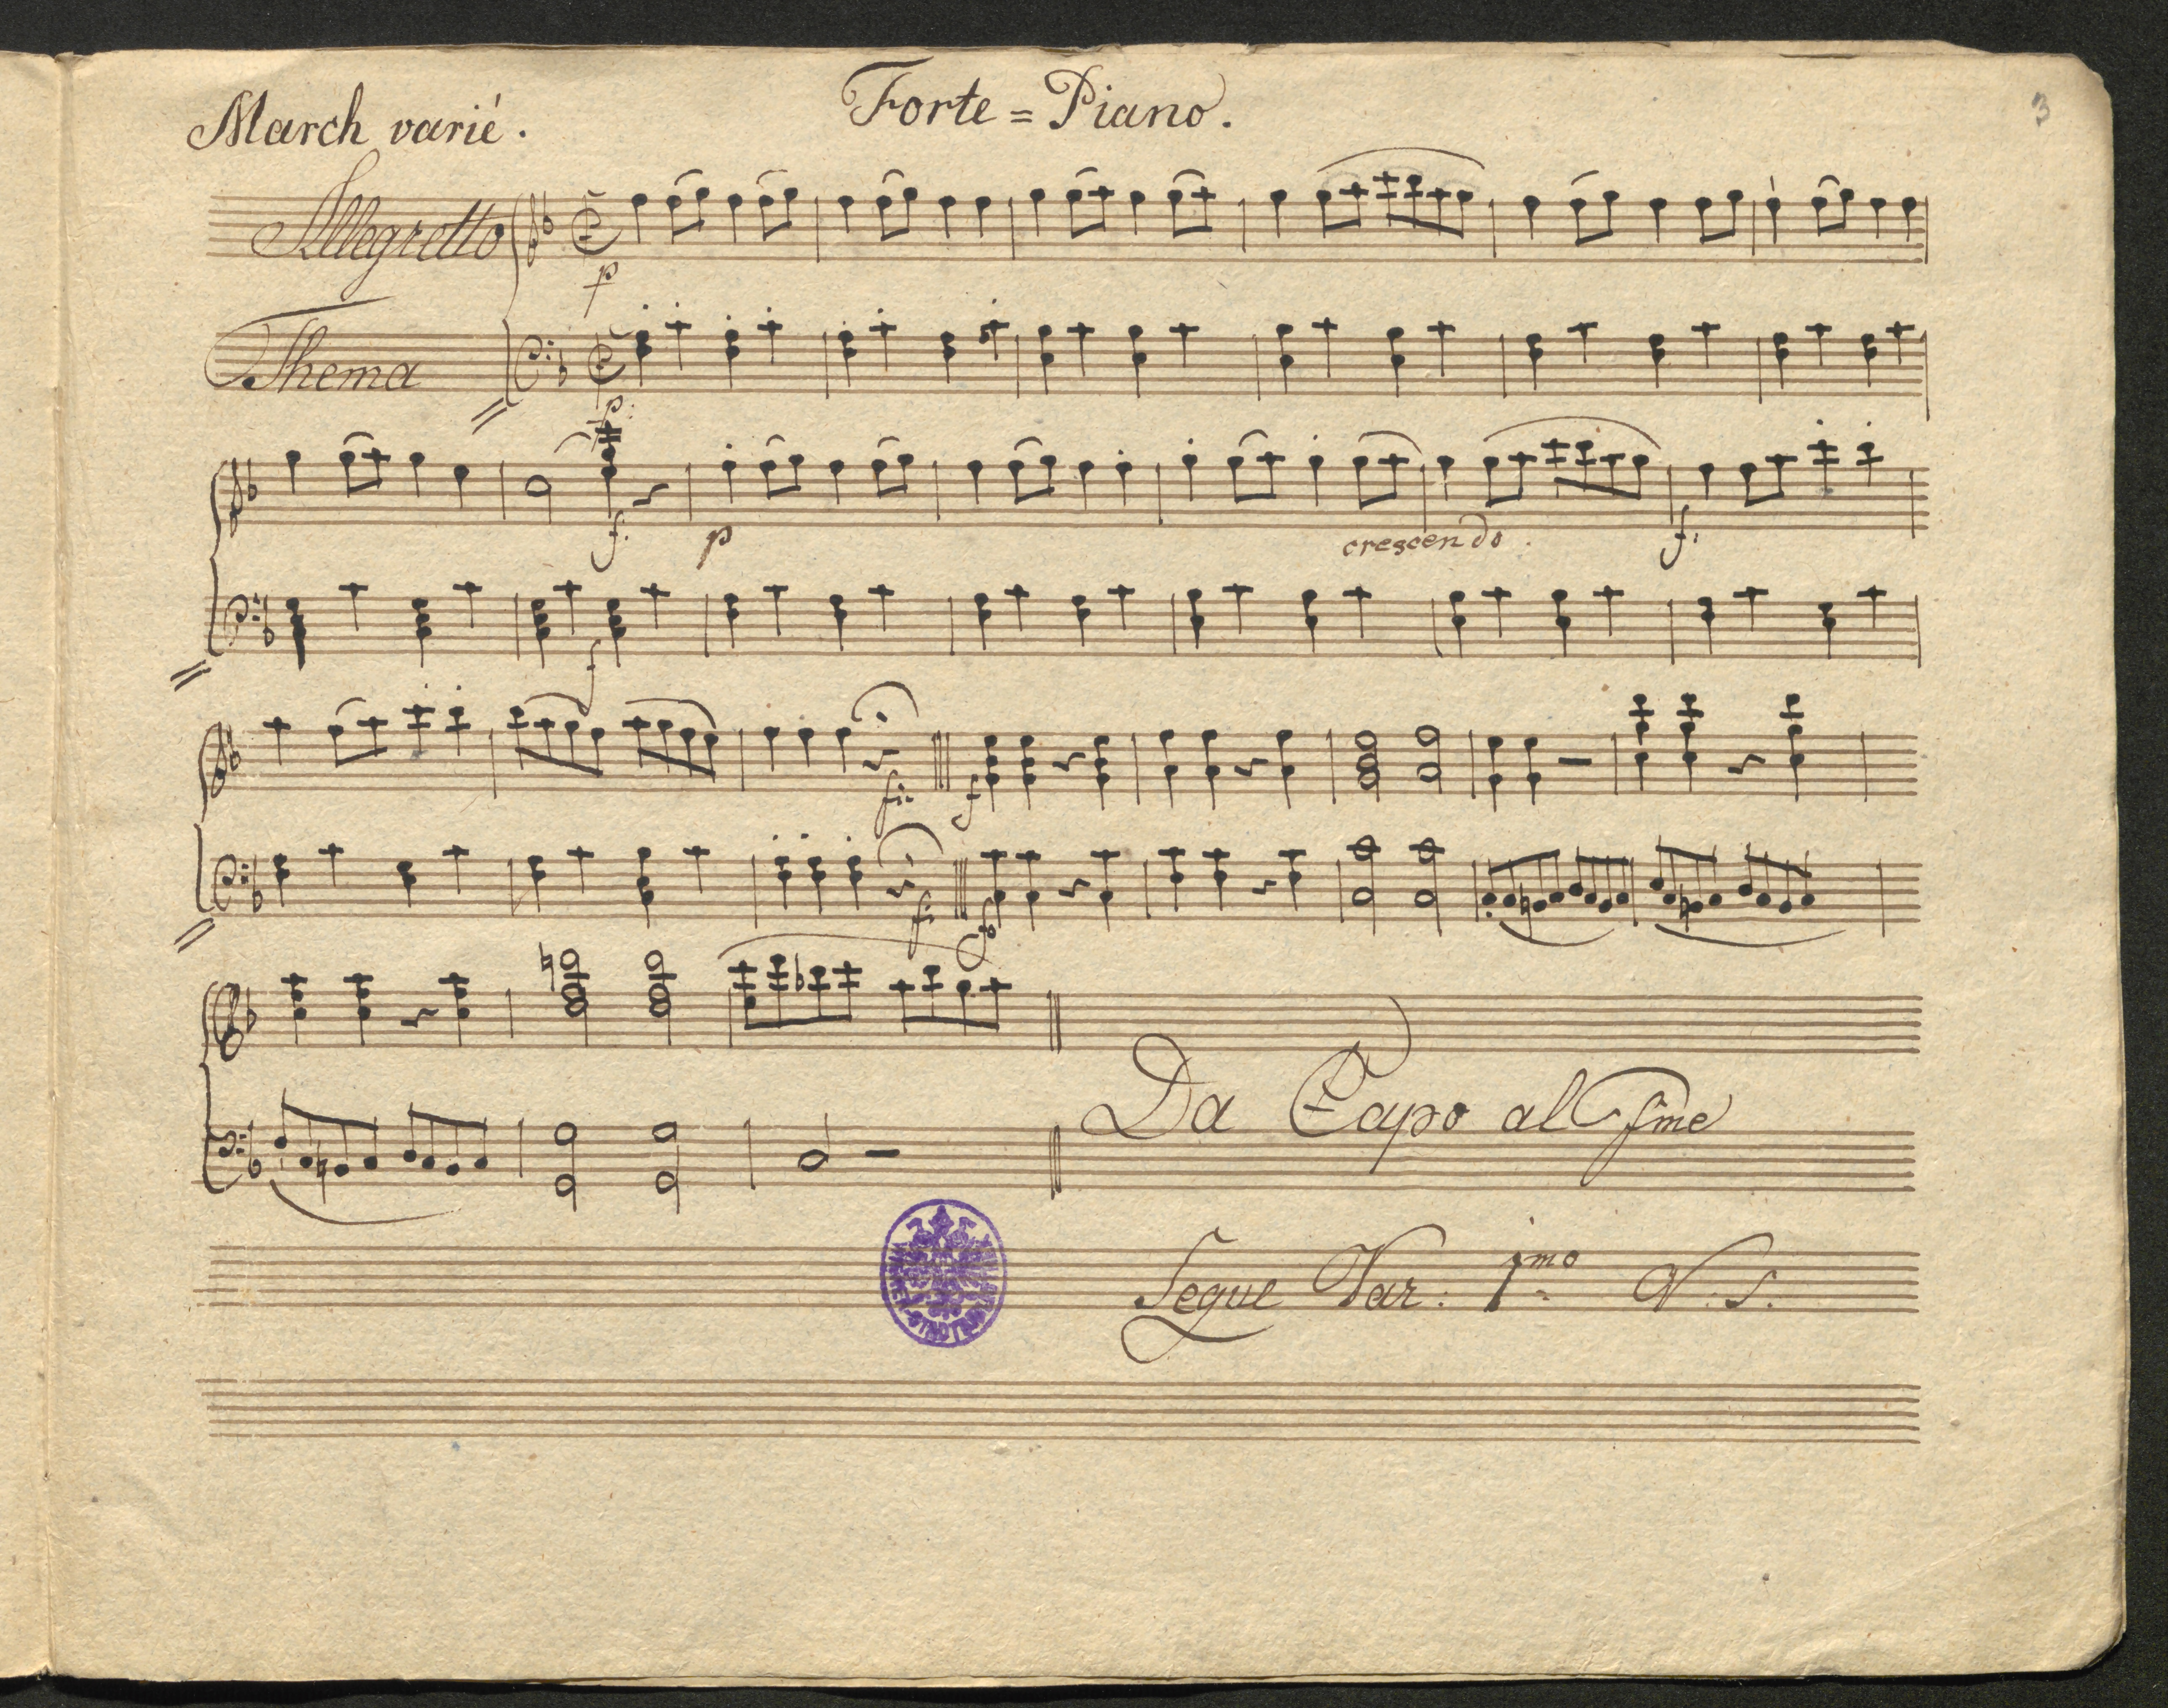 3
March varié. Forte=Piano.
Allegretto
p
Thema
p:
f. p crescendo. f:
f
f: f
f: f
Da Capo al fine
Segue Var: 1mo V. S.